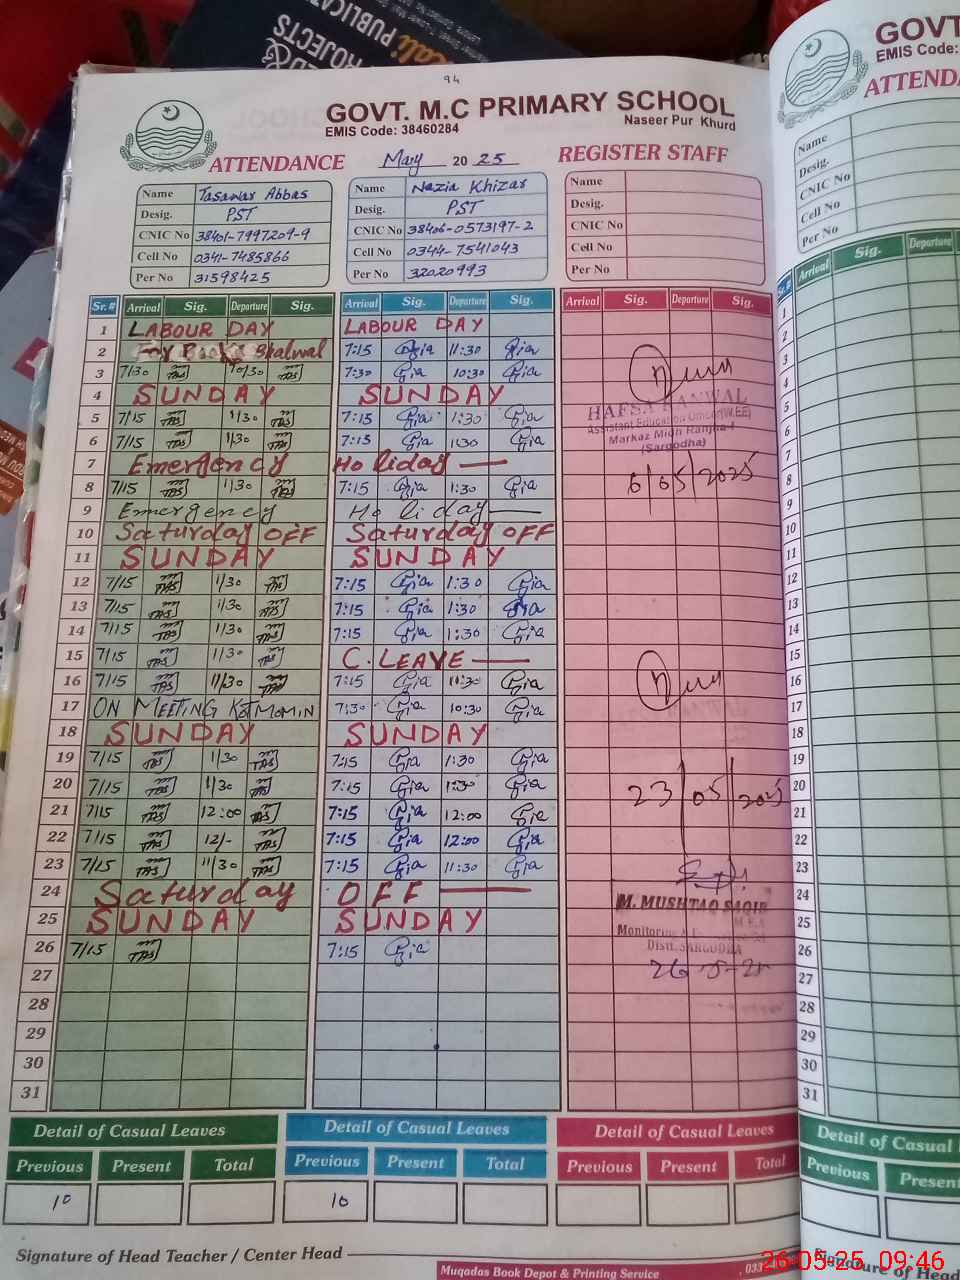 PUBLICATI
ED &
ROJECTS
94
GOVT. M.C PRIMARY SCHOOL
EMIS Code: 38460284 Naseer Pur Khurd
ATTENDANCE May 20 25 REGISTER STAFF
Name Tasawar Abbas Name Nazia Khizar Name
Desig. PST Desig. PST Desig.
CNIC No 38401-7997209-9 CNIC No 38406-0573197-2 CNIC No
Cell No 0341-7485866 Cell No 0344-7541043 Cell No
Per No 31598425 Per No 32020993 Per No
Sr.# Arrival Sig. Departure Sig. Arrival Sig. Departure Sig. Arrival Sig. Departure Sig.
1 LABOUR DAY LABOUR DAY
2 For Books Bhalwal 7:15 Gia 11:30 Gia
3 7/30 TAS 10/30 TAS 7:30 Gia 10:30 Gia
4 SUNDAY SUNDAY
5 7/15 TAS 1/30 TAS 7:15 Gia 1:30 Gia
6 7/15 TAS 1/30 TAS 7:15 Gia 1:30 Gia
7 Emergency Holiday —
8 7/15 TAS 1/30 TAS 7:15 Gia 1:30 Gia
9 Emergency Holiday —
10 Saturday OFF Saturday OFF
11 SUNDAY SUNDAY
12 7/15 TAS 1/30 TAS 7:15 Gia 1:30 Gia
13 7/15 TAS 1/30 TAS 7:15 Gia 1:30 Gia
14 7/15 TAS 1/30 TAS 7:15 Gia 1:30 Gia
15 7/15 TAS 1/30 TAS C. LEAVE —
16 7/15 TAS 11/30 TAS 7:15 Gia 11:30 Gia
17 ON MEETING KOTMOMIN 7:30 Gia 10:30 Gia
18 SUNDAY SUNDAY
19 7/15 TAS 1/30 TAS 7:15 Gia 1:30 Gia
20 7/15 TAS 1/30 TAS 7:15 Gia 1:30 Gia
21 7/15 TAS 12:00 TAS 7:15 Gia 12:00 Gia
22 7/15 TAS 12/- TAS 7:15 Gia 12:00 Gia
23 7/15 TAS 11/30 TAS 7:15 Gia 11:30 Gia
24 Saturday OFF —
25 SUNDAY SUNDAY
26 7/15 TAS 7:15 Gia
27
28
29
30
31
HAFSA KANWAL
Assistant Education Officer(W.EE)
Markaz Midh Ranjha-I
(Sargodha)
6/05/2025
23/05/2025
M. MUSHTAQ SAQIB
M.E.A
Distt. SARGODHA
Detail of Casual Leaves Detail of Casual Leaves Detail of Casual Leaves
Previous Present Total Previous Present Total Previous Present Total
10 10
Signature of Head Teacher / Center Head
Muqadas Book Depot & Printing Service
GOVT
EMIS Code:
ATTENDA
Name
Desig.
CNIC No
Cell No
Per No
Sr.# Arrival Sig. Departure
1
2
3
4
5
6
7
8
9
10
11
12
13
14
15
16
17
18
19
20
21
22
23
24
25
26
27
28
29
30
31
Detail of Casual
Previous Present
Signature of Head
26-05-25 09:46